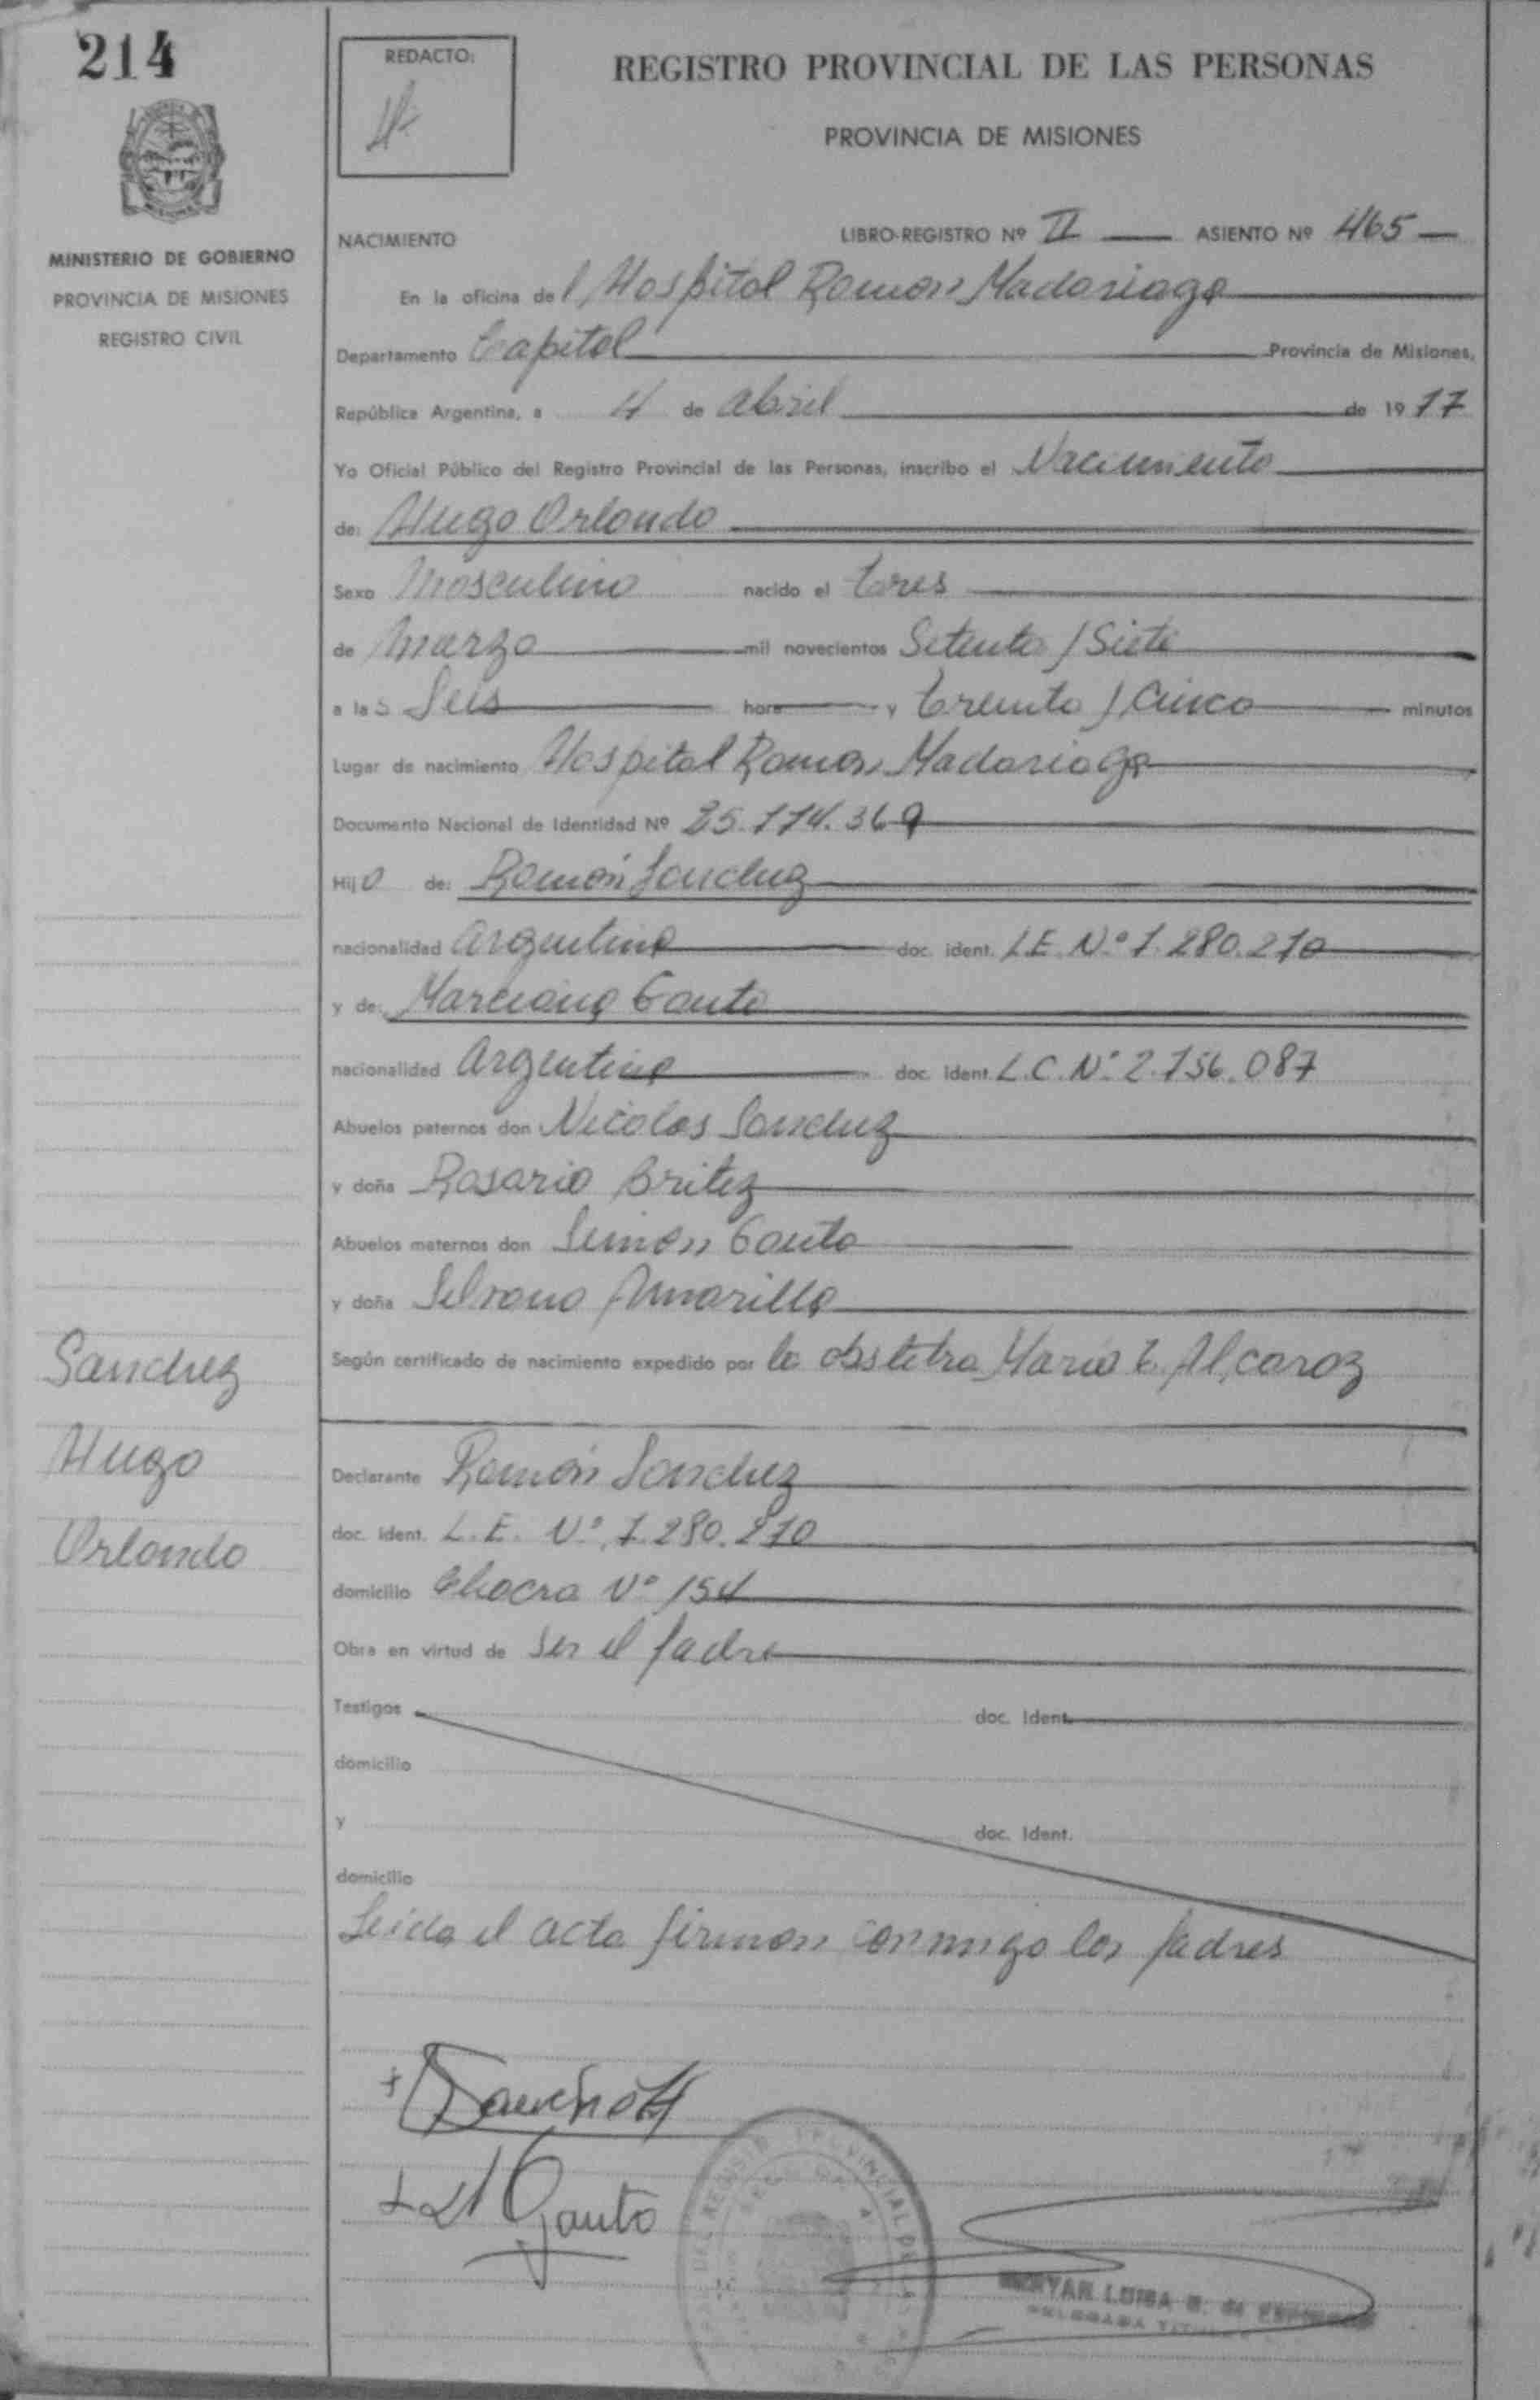 214
MINISTERIO DE GOBIERNO
PROVINCIA DE MISIONES
REGISTRO CIVIL
REDACTO:
REGISTRO PROVINCIAL DE LAS PERSONAS
PROVINCIA DE MISIONES
NACIMIENTO LIBRO-REGISTRO Nº II ASIENTO Nº 465
En la oficina del Hospital Ramon Madariaga
Departamento Capital Provincia de Misiones,
República Argentina, a 4 de abril de 1977
Yo Oficial Público del Registro Provincial de las Personas, inscribo el Nacimiento
de: Hugo Orlando
Sexo Masculino nacido el tres
de Marzo mil novecientos Setenta / Siete
a las Seis hora y treinta / Cinco minutos
Lugar de nacimiento Hospital Ramon Madariaga
Documento Nacional de Identidad Nº 25.174.369
Hijo de: Ramón Sanchez
nacionalidad argentina doc. ident. L.E. Nº 7.280.270
y de: Marciana Gauto
nacionalidad argentina doc. ident. L.C. Nº 2.756.087
Abuelos paternos don Nicolas Sanchez
y doña Rosario Britez
Abuelos maternos don Simon Gauto
y doña Silvana Amarilla
Según certificado de nacimiento expedido por la obstetra Maria E. Alcaraz
Declarante Ramón Sanchez
doc. ident. L.E. Nº 7.280.270
domicilio Chacra Nº 154
Obra en virtud de ser el padre
Testigos doc. Ident.
domicilio
y doc. Ident.
domicilio
Leida el acta firman conmigo los padres
Sanchez
Hugo
Orlando
Gauto